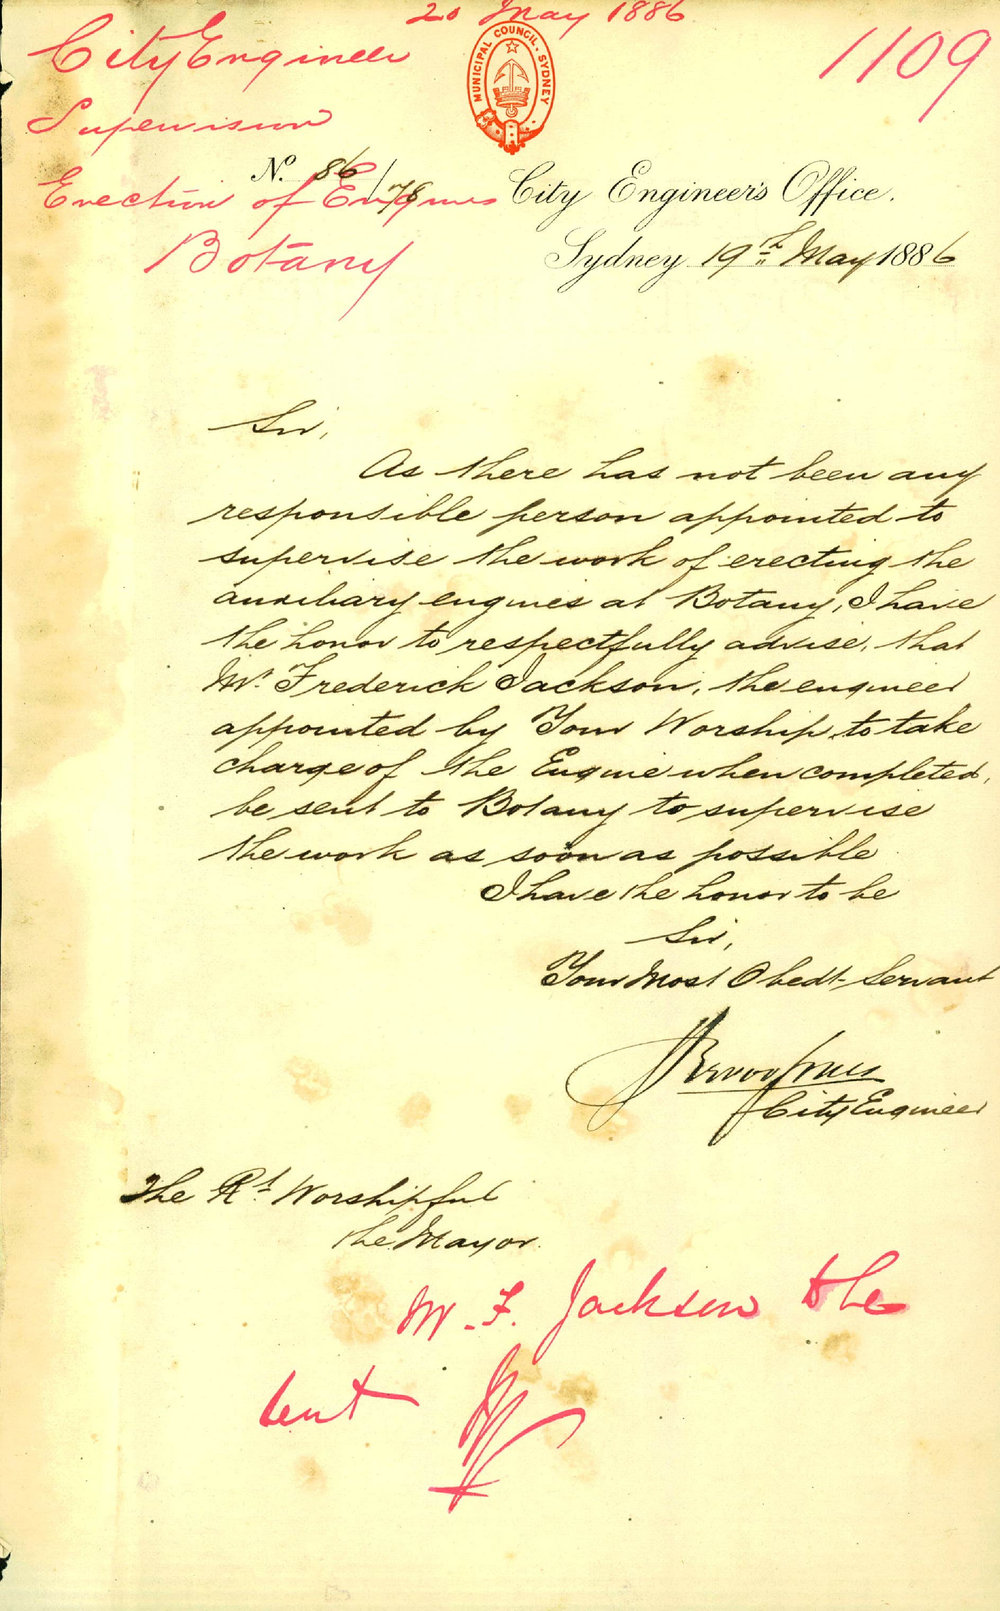 20 May 1886
1109
City Engineer
Supervision
Erection of Engines
Botany
MUNICIPAL COUNCIL. SYDNEY
No. 86/78
City Engineer's Office.
Sydney 19th May 1886
Sir,
As there has not been any
responsible person appointed to
supervise the work of erecting the
auxiliary engines at Botany, I have
the honor to respectfully advise, that
Mr. Frederick Jackson, the engineer
appointed by Your Worship, to take
charge of the Engine when completed,
be sent to Botany to supervise
the work as soon as possible
I have the honor to be
Sir,
Your Most Obedt. Servant
City Engineer
The Rt. Worshipful
the Mayor.
M. F. Jackson to be
sent